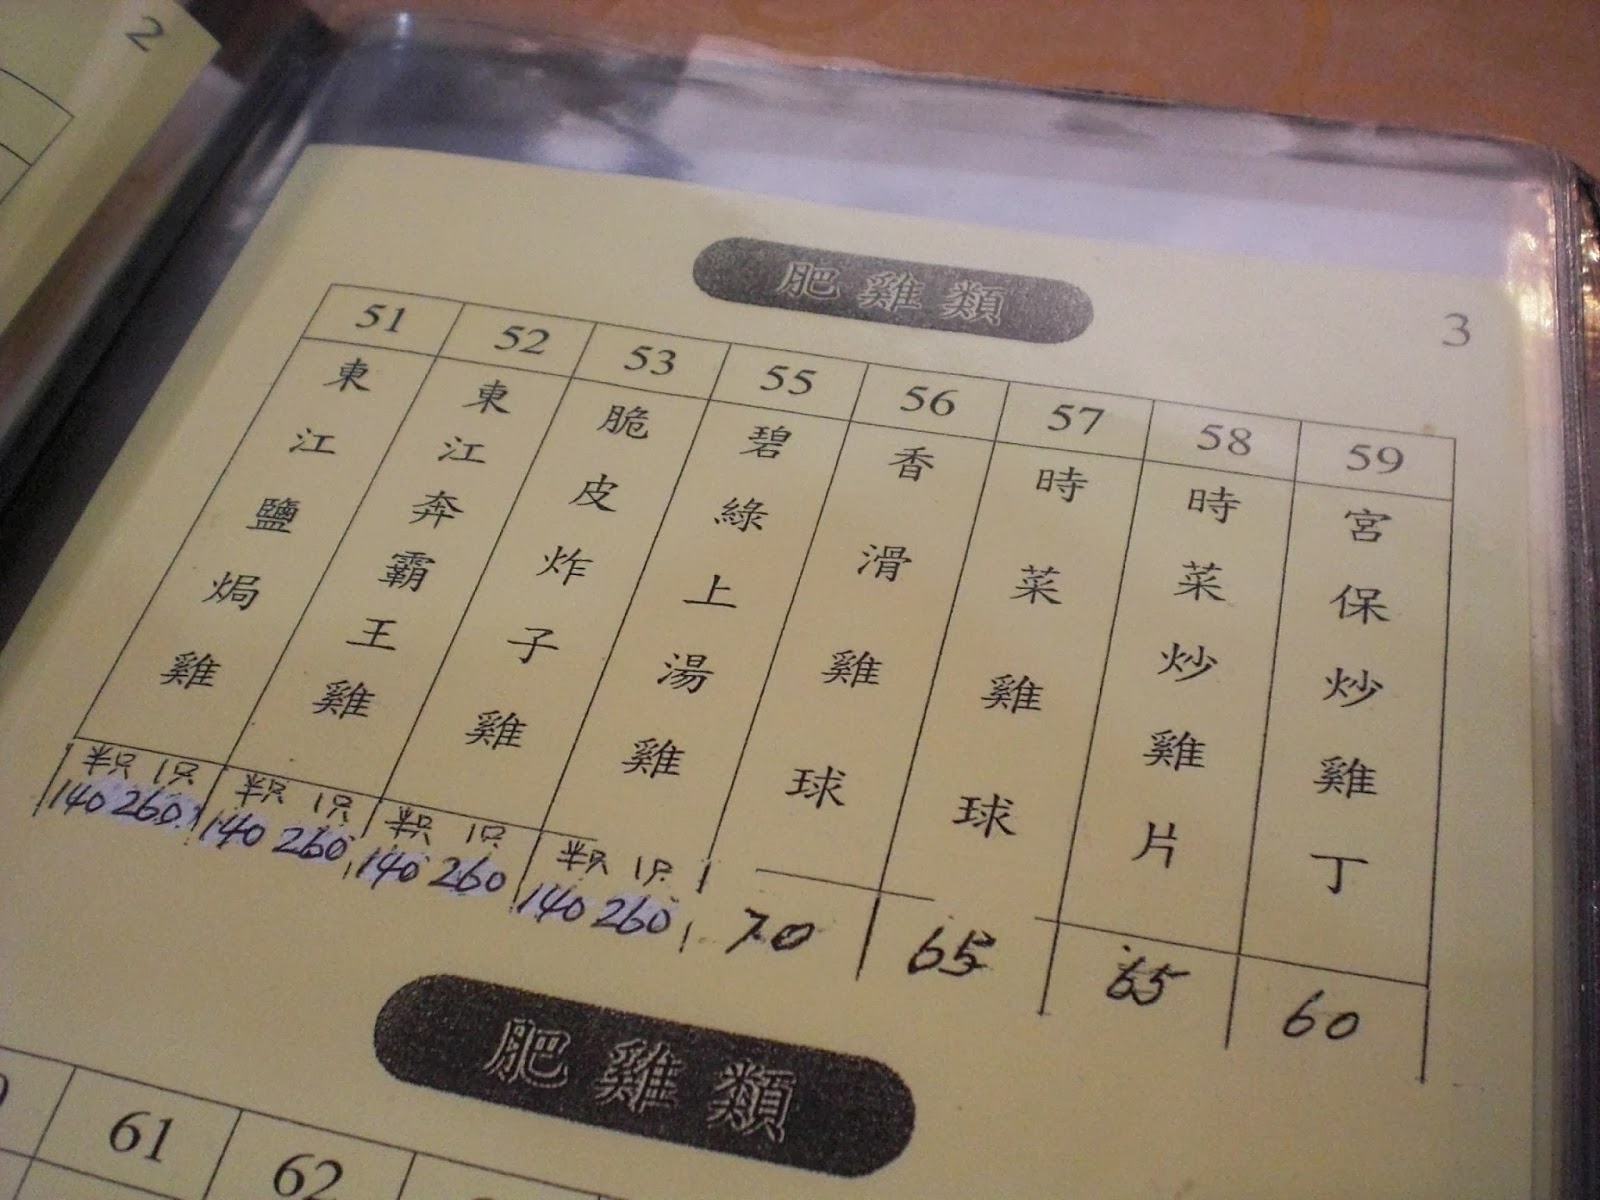 2
3
肥雞類
51 52 53 55 56 57 58 59
東江鹽焗雞
東江奔霸王雞
脆皮炸子雞
碧綠上湯雞
香滑雞球
時菜雞球
時菜炒雞片
宮保炒雞丁
半只 1只 半只 1只 半只 1只 半只 1只
140 260 140 260 140 260 140 260 70 65 65 60
肥雞類
61 62